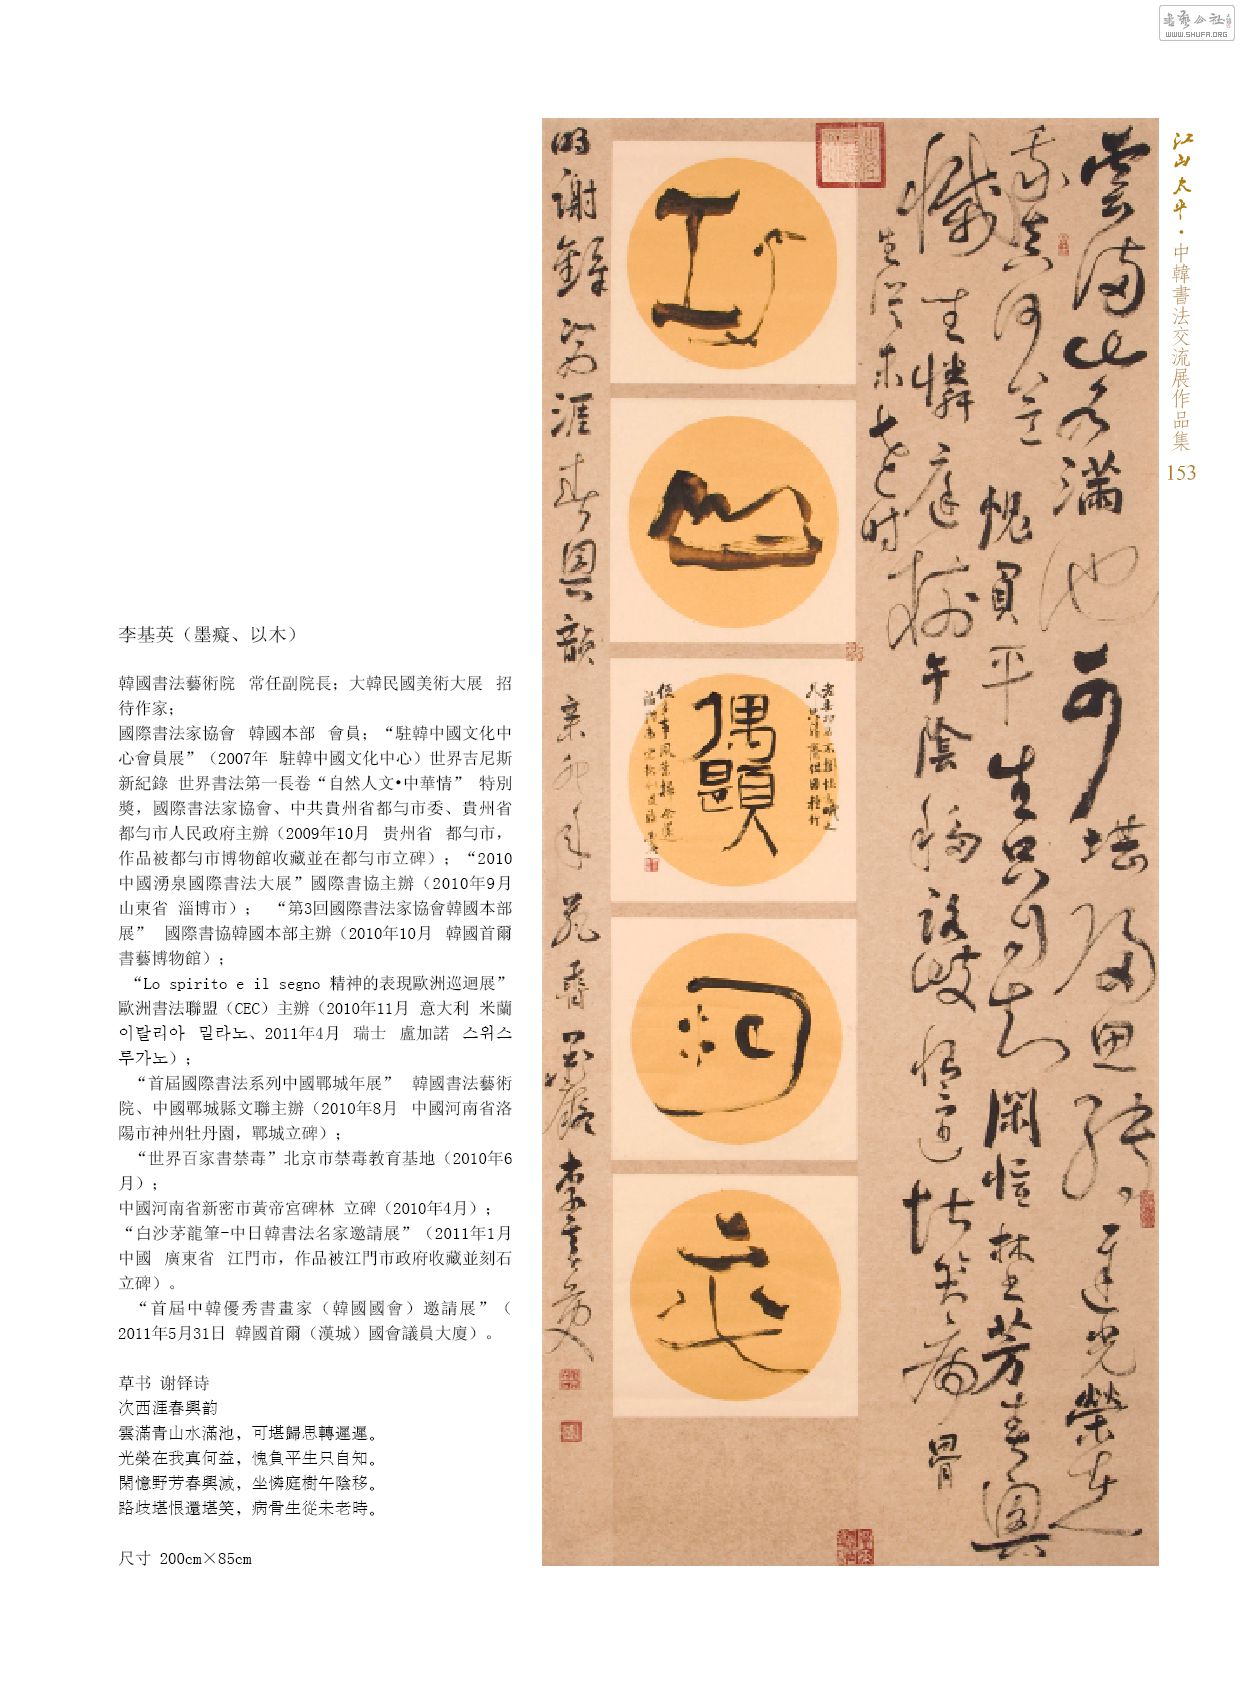 書藝公社
WWW.SHUFA.ORG
江山太平·中韓書法交流展作品集
153
李基英（墨癡、以木）
韓國書法藝術院 常任副院長；大韓民國美術大展 招
待作家；
國際書法家協會 韓國本部 會員；“駐韓中國文化中
心會員展”（2007年 駐韓中國文化中心）世界吉尼斯
新紀錄 世界書法第一長卷“自然人文•中華情” 特別
獎，國際書法家協會、中共貴州省都勻市委、貴州省
都勻市人民政府主辦（2009年10月 贵州省 都勻市，
作品被都勻市博物館收藏並在都勻市立碑）；“2010
中國湧泉國際書法大展”國際書協主辦（2010年9月
山東省 淄博市）； “第3回國際書法家協會韓國本部
展” 國際書協韓國本部主辦（2010年10月 韓國首爾
書藝博物館）；
“Lo spirito e il segno 精神的表現歐洲巡迴展”
歐洲書法聯盟（CEC）主辦（2010年11月 意大利 米蘭
이탈리아 밀라노、2011年4月 瑞士 盧加諾 스위스
루가노）；
“首屆國際書法系列中國鄲城年展” 韓國書法藝術
院、中國鄲城縣文聯主辦（2010年8月 中國河南省洛
陽市神州牡丹園，鄲城立碑）；
“世界百家書禁毒”北京市禁毒教育基地（2010年6
月）；
中國河南省新密市黃帝宮碑林 立碑（2010年4月）；
“白沙茅龍筆-中日韓書法名家邀請展”（2011年1月
中國 廣東省 江門市，作品被江門市政府收藏並刻石
立碑）。
“首屆中韓優秀書畫家（韓國國會）邀請展”（
2011年5月31日 韓國首爾（漢城）國會議員大廈）。
草书 谢铎诗
次西涯春興韵
雲滿青山水滿池，可堪歸思轉遲遲。
光榮在我真何益，愧負平生只自知。
閑憶野芳春興減，坐憐庭樹午陰移。
路歧堪恨還堪笑，病骨生從未老時。
尺寸 200cm×85cm
雲滿山水滿池可堪歸思轉遲光榮在
我真何益愧負平生只自知閑憶埜芳春興
減坐憐庭樹午陰移路歧恨還堪笑病骨
生從未老時
江
山
偶題
明謝鐸次西涯春興韻辛卯年 李基英